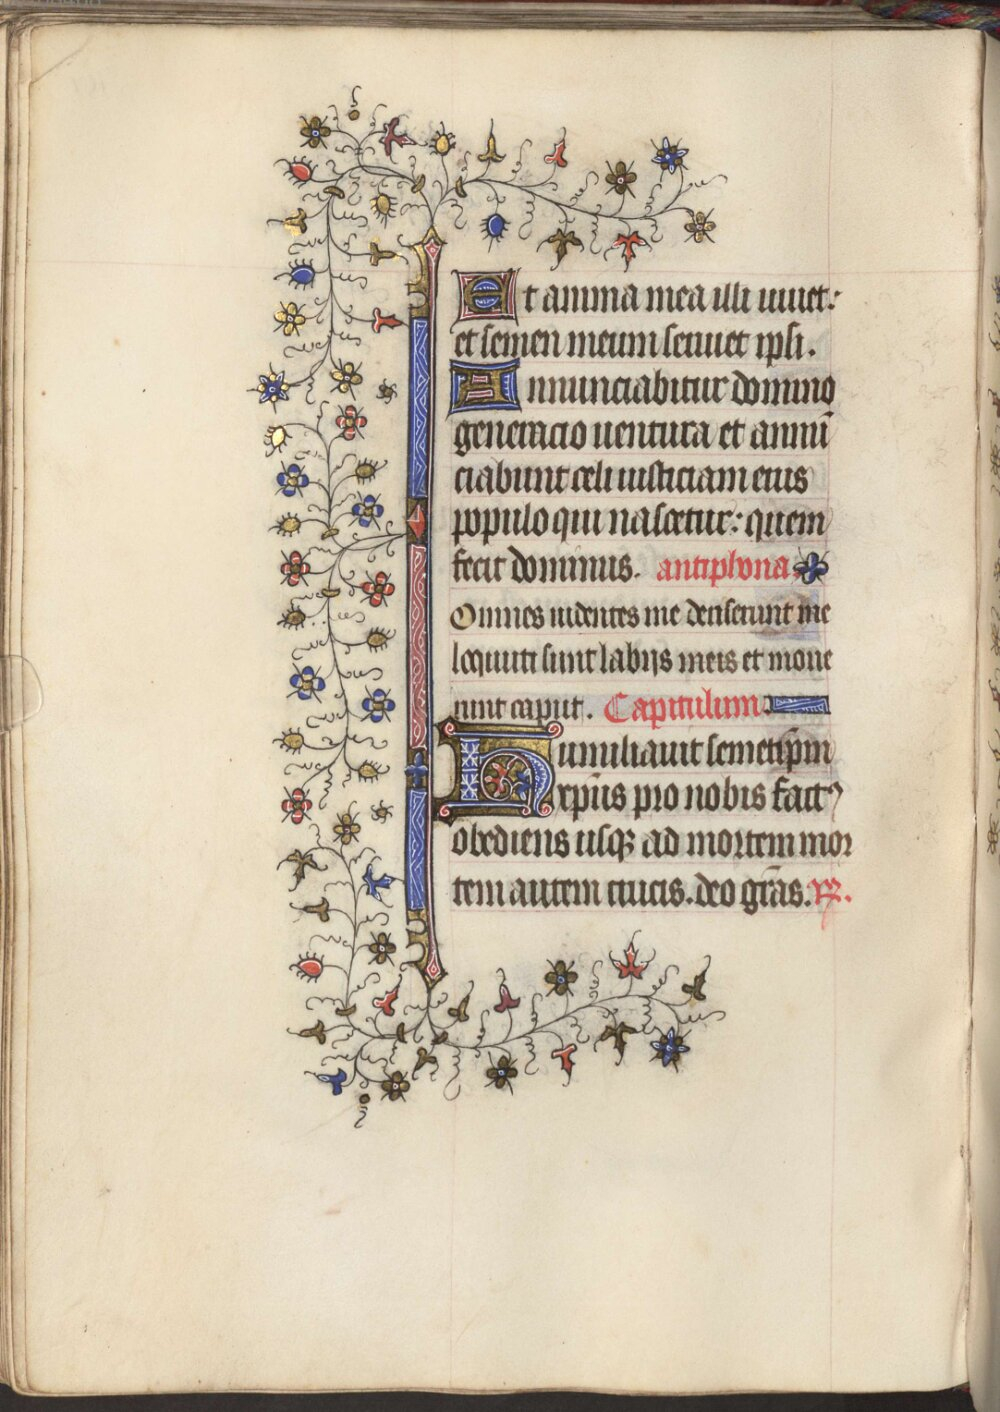 Et anima mea illi uiuet:
et semen meum seruiet ipsi.
Annunciabitur domino
generacio uentura et annū
ciabunt celi iusticiam eius
populo qui nascetur: quem
fecit dominus. antiphona
Omnes uidentes me deriserunt me
loquuti sunt labijs meis et moue
runt caput. Capitulum
Humiliauit semetip̄m
xp̄us pro nobis fact᷒
obediens usqꝫ ad mortem mor
tem autem crucis. deo gr̄as. ꝶ.